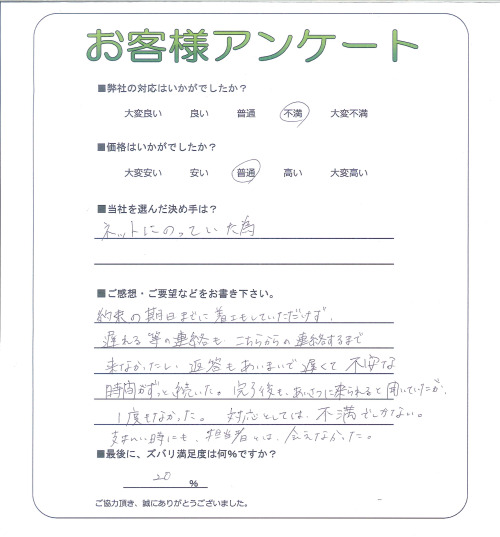 お客様アンケート
■弊社の対応はいかがでしたか？
大変良い 良い 普通 不満 大変不満
■価格はいかがでしたか？
大変安い 安い 普通 高い 大変高い
■当社を選んだ決め手は？
ネットにのっていた為
■ご感想・ご要望などをお書き下さい。
約束の期日までに着工もしていただけず、
遅れる等の連絡も、こちらからの連絡するまで
来なかったし、返答もあいまいで遅くて不安な
時間がずっと続いた。完了後も、あいさつに来られると聞いていたが、
1度もなかった。対応としては、不満でしかない。
支払い時にも、担当者とは、会えなかった。
■最後に、ズバリ満足度は何％ですか？
20 %
ご協力頂き、誠にありがとうございました。